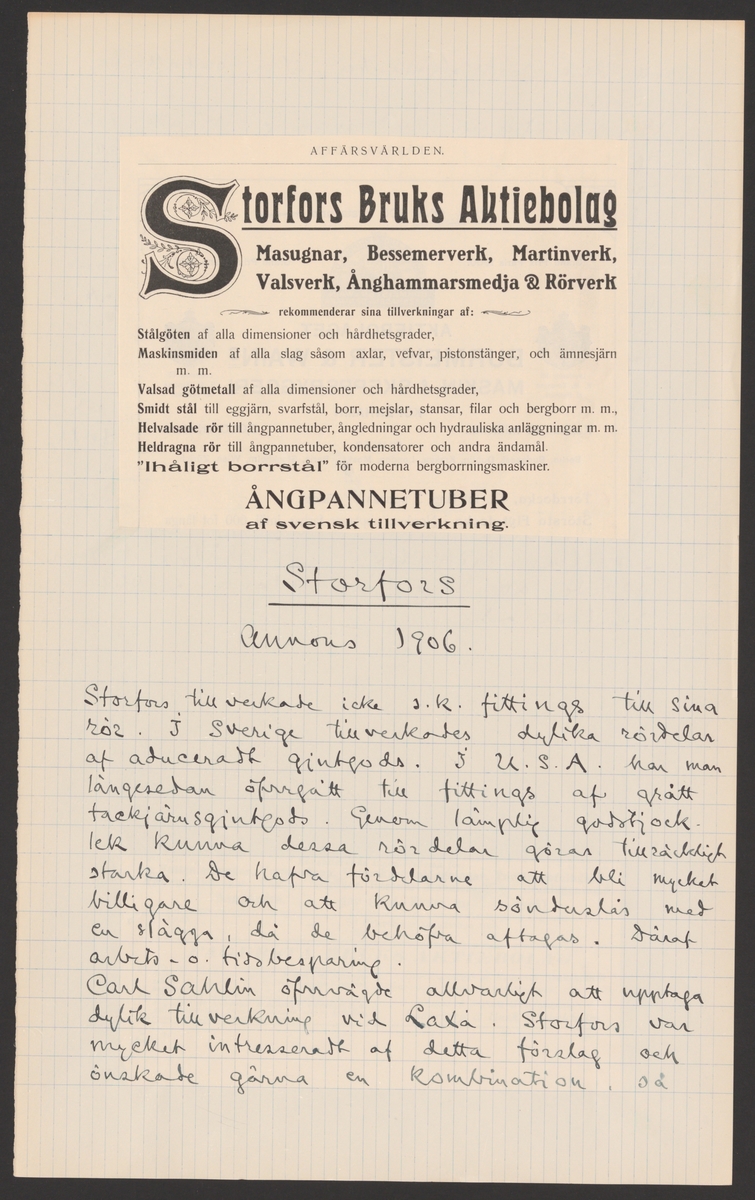 AFFÄRSVÄRLDEN.
Storfors Bruks Aktiebolag
Masugnar, Bessemerverk, Martinverk,
Valsverk, Ånghammarsmedja & Rörverk
rekommenderar sina tillverkningar af:
Stålgöten af alla dimensioner och hårdhetsgrader,
Maskinsmiden af alla slag såsom axlar, vefvar, pistonstänger, och ämnesjärn
m. m.
Valsad götmetall af alla dimensioner och hårdhetsgrader,
Smidt stål till eggjärn, svarfstål, borr, mejslar, stansar, filar och bergborr m. m.,
Helvalsade rör till ångpannetuber, ångledningar och hydrauliska anläggningar m. m.
Heldragna rör till ångpannetuber, kondensatorer och andra ändamål.
"Ihåligt borrstål" för moderna bergborrningsmaskiner.
ÅNGPANNETUBER
af svensk tillverkning.
Storfors
Annons 1906.
Storfors tillverkade icke s.k. fittings till sina
rör. I Sverige tillverkades dylika rördelar
af aduceradt gjutgods. I U.S.A. har man
längesedan öfvergått till fittings af grått
tackjärnsgjutgods. Genom lämplig godstjock-
lek kunna dessa rördelar göras tillräckligt
starka. De hafva fördelarne att bli mycket
billigare och att kunna sönderslås med
en slägga, då de behöfva aftagas. Däraf
arbets- o. tidsbesparing.
Carl Sahlin öfvervägde allvarligt att upptaga
dylik tillverkning vid Laxå. Storfors var
mycket intresseradt af detta förslag och
önskade gärna en kombination, så